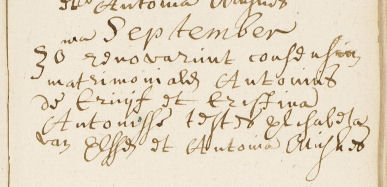 et Antonia
September
30 renovarunt consensum
matrimonialem Antonius
de Cruijf et Cristina
Antonisse testes Elisabeta
van Essen et Antonia